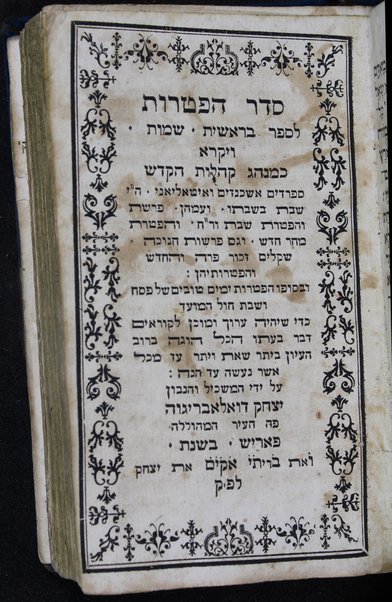 סדר הפטרות
לספר בראשית · שמות ·
ויקרא
כמנהג קהלות הקדש
ספרדים אשכנזים ואיטאליאני · ה"י
שבת בשבתו · ועמהן · פרשת
והפטרות שבת ור"ח · והפטרות
מחר חדש · וגם פרשות חנוכה ·
שקלים זכור פרה והחדש
והפטרותיהן :
ובסופו הפטרות ימים טובים של פסח
ושבת חול המועד
כדי שיהיה ערוך ומוכן לקוראים
דבר בעתו הכל הוגה ברוב
העיון ביתר שאת ויתר עד מכל
אשר נעשה עד הנה :
על ידי המשכיל והנבון
יצחק דואלאבריגוה
פה העיר המהוללה
פאריש · בשנת ·
ואת בריתי אקים את יצחק
לפ"ק